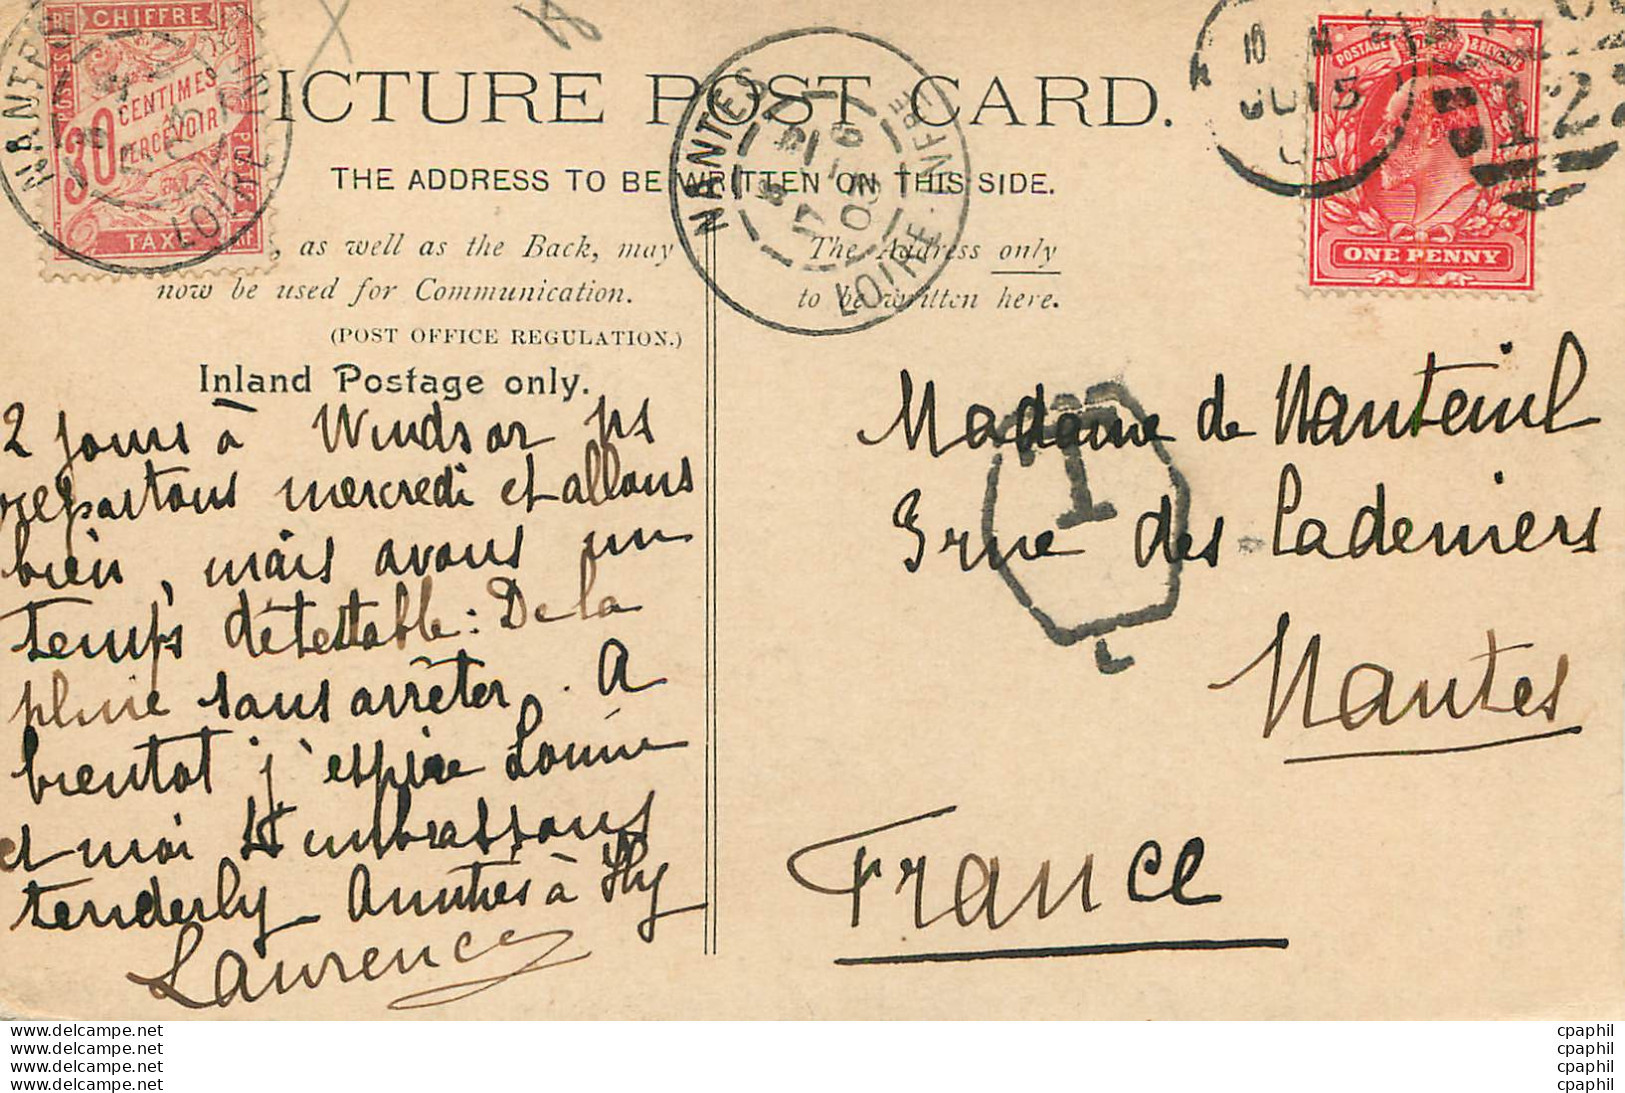 PICTURE POST CARD.
THE ADDRESS TO BE WRITTEN ON THIS SIDE.
, as well as the Back, may
now be used for Communication.
(POST OFFICE REGULATION.)
Inland Postage only.
The Address only
to be written here.
CHIFFRE
POSTES
30
CENTIMES
PERCEVOIR
TAXE
RF
NANTES
LOIRE
NANTES
17
03
LOIRE-INFRE
10
JU 15
POSTAGE
ONE PENNY
T
2 jours à Windsor ns
repartons mercredi et allons
bien, mais avons un
temps détestable : De la
pluie sans arrêter. A
bientot j'espère Louise
et moi t'embrassons
tenderly
Laurence
Madame de Nanteuil
3 rue des Cadeniers
Nantes
France
www.delcampe.net
www.delcampe.net
www.delcampe.net
www.delcampe.net
cpaphil
cpaphil
cpaphil
cpaphil